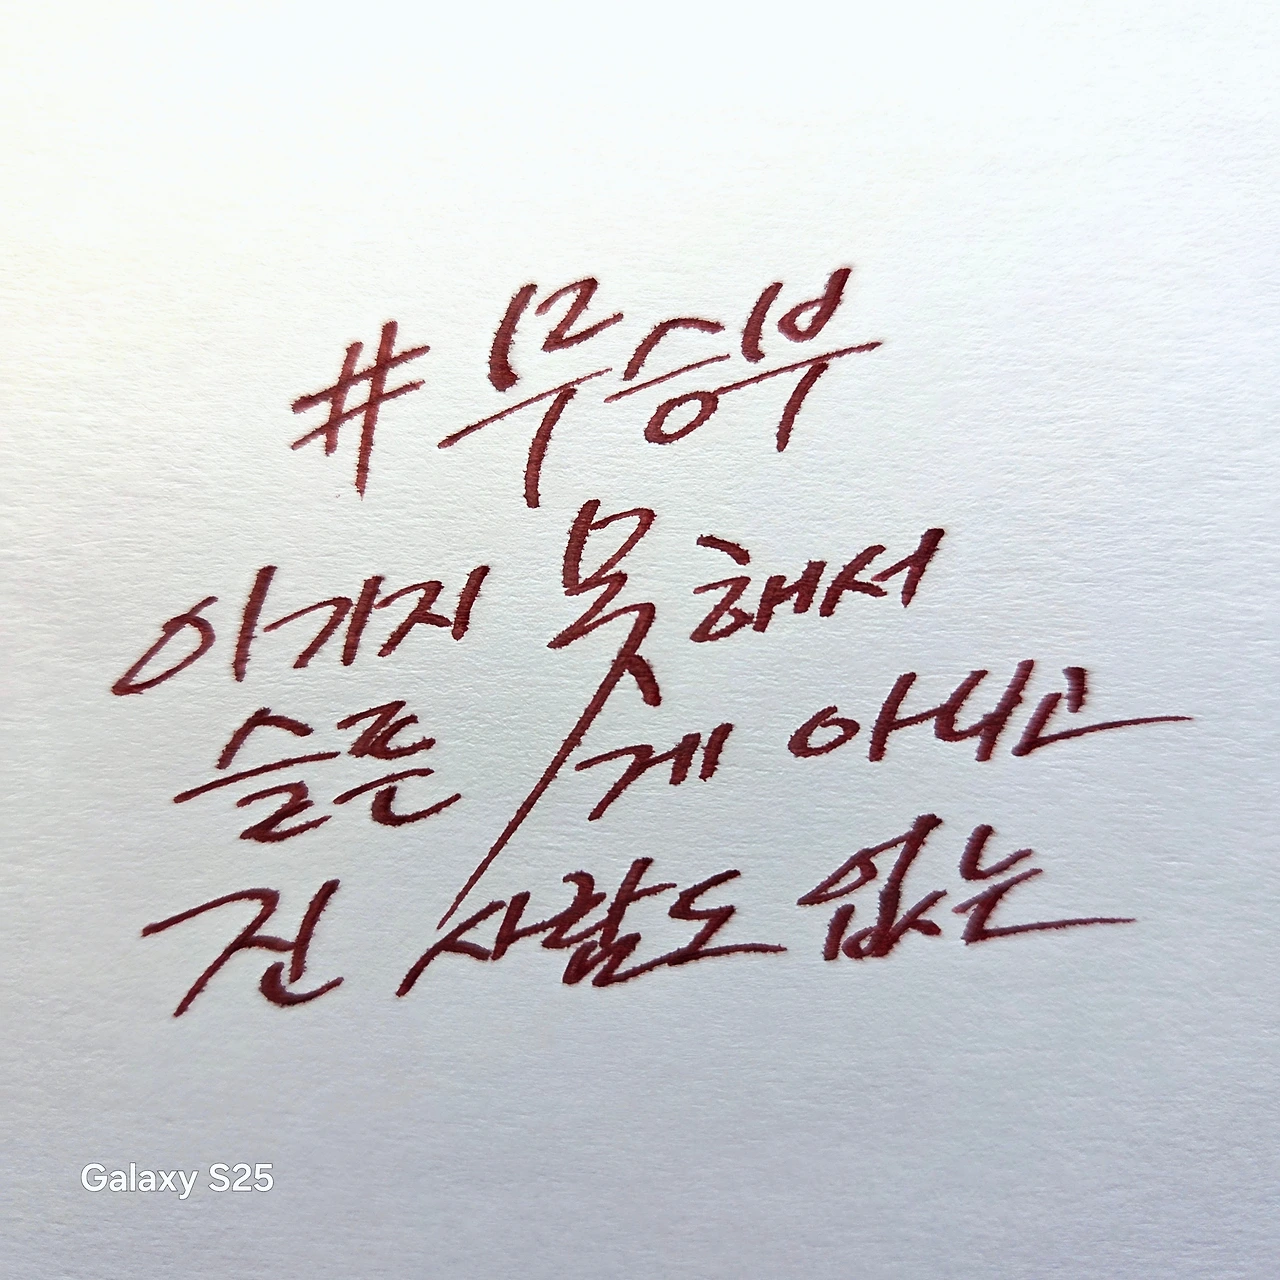 #무승부
이기지 못해서
슬픈 게 아니고
진 사람도 없는
Galaxy S25